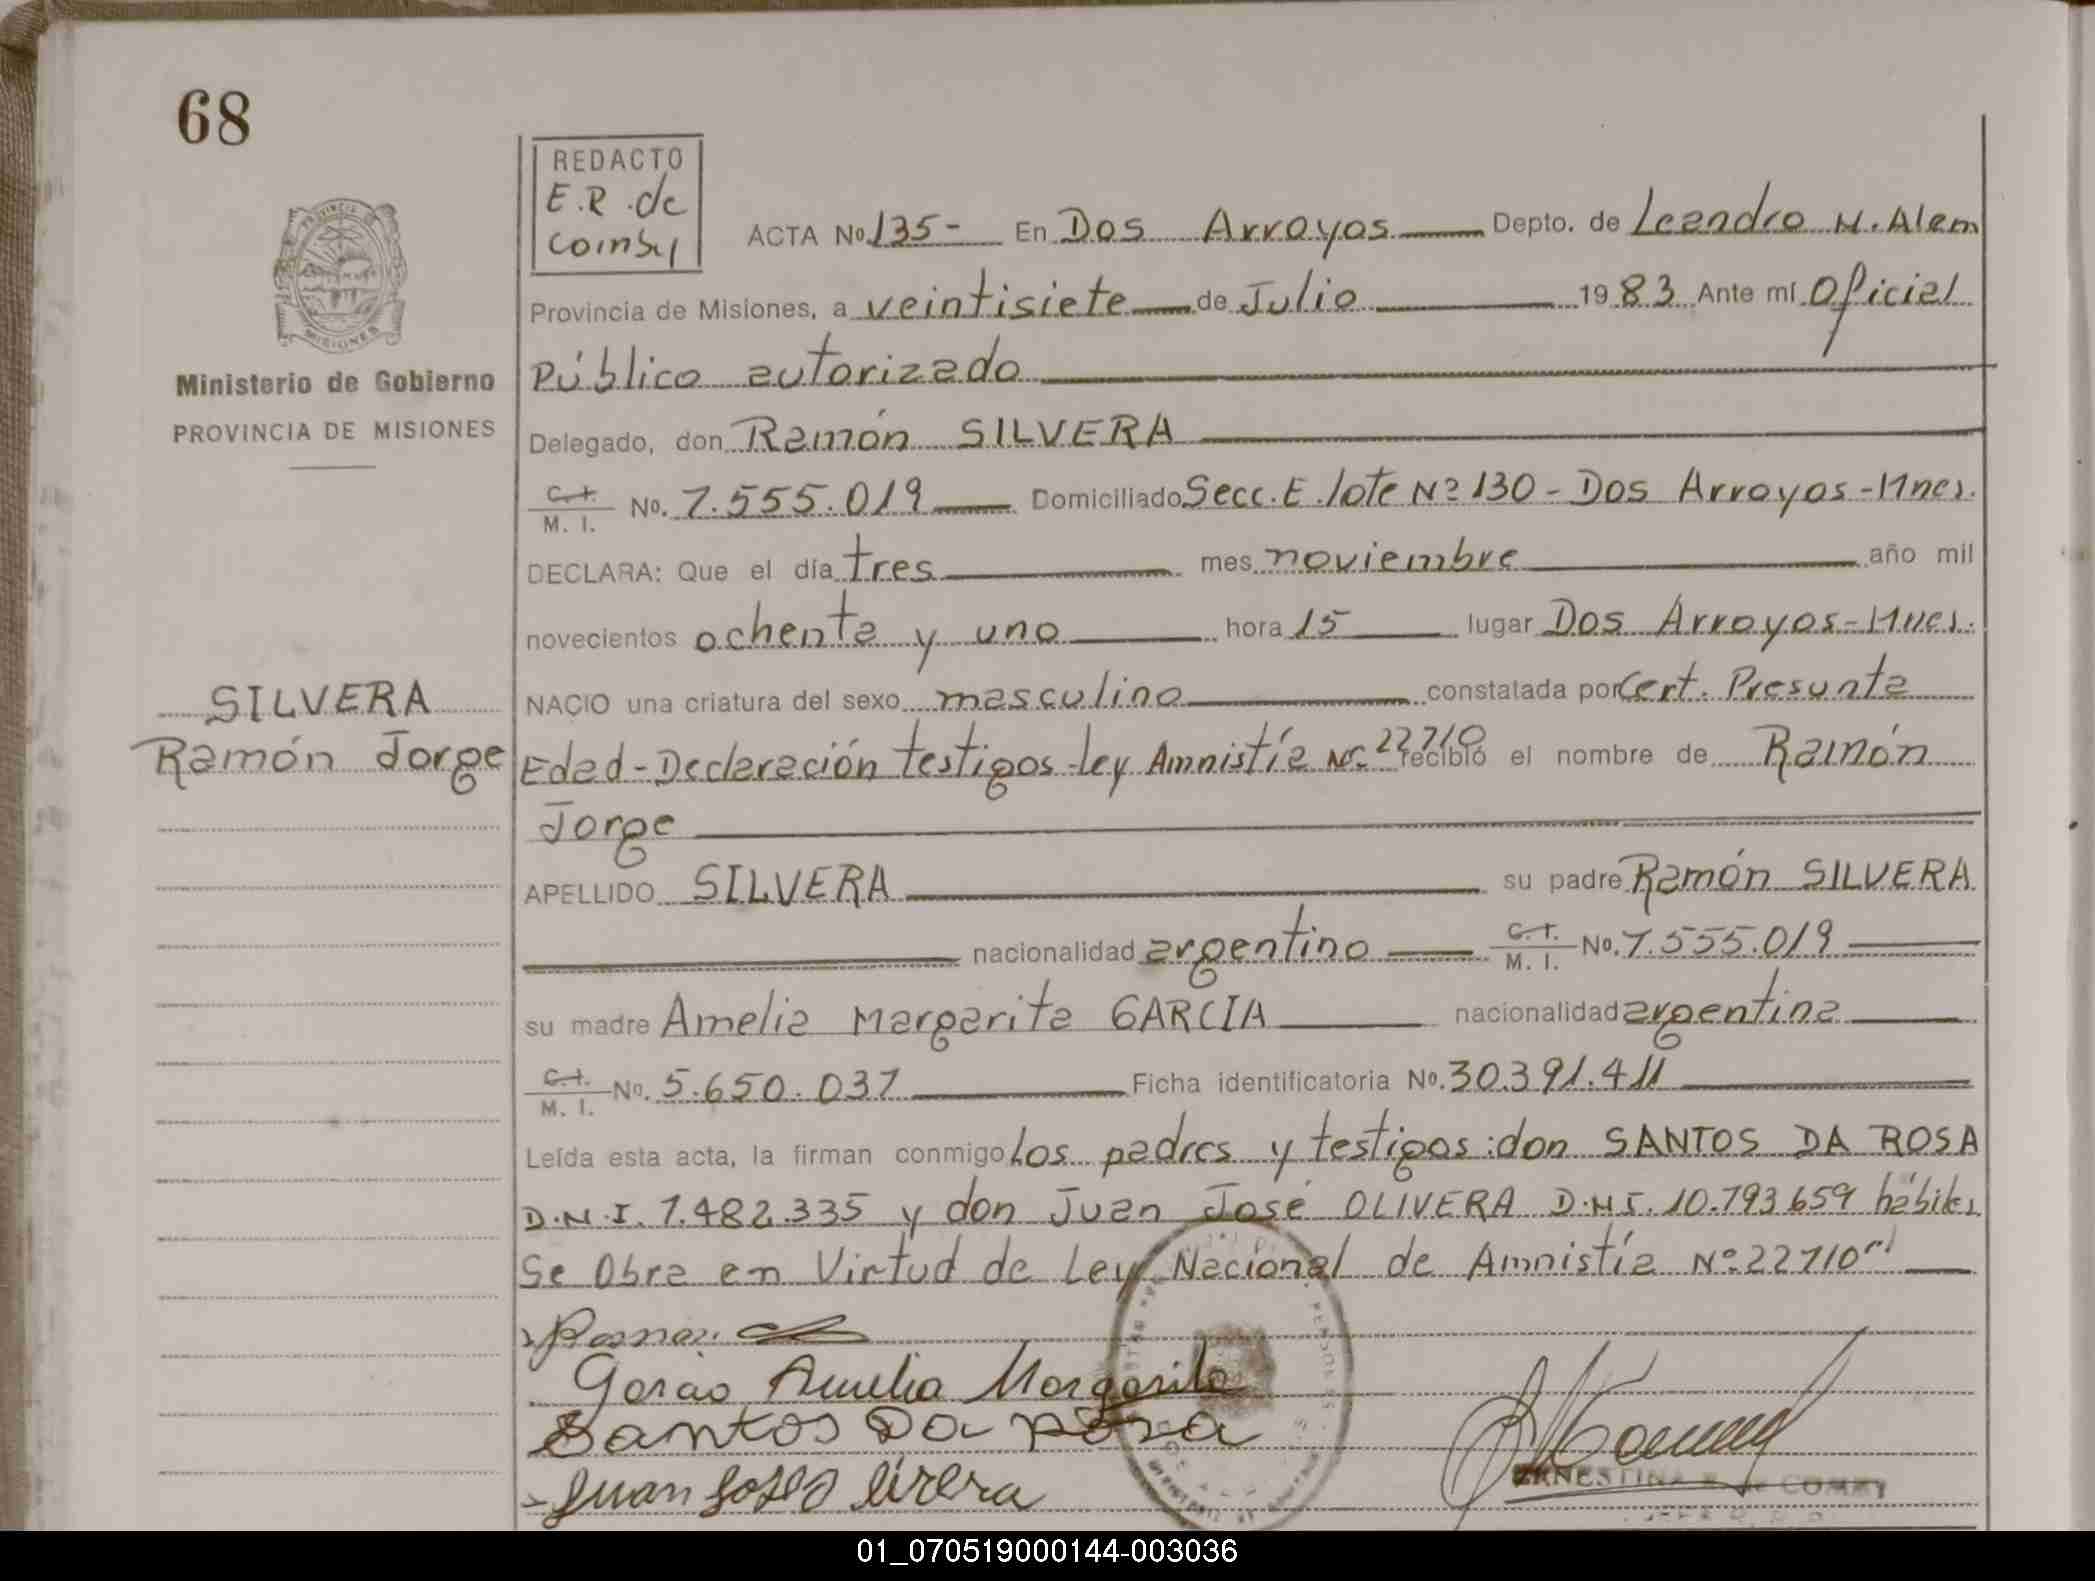 68
REDACTO
E.R. de
ACTA No 135- En Dos Arroyos Depto. de Leandro N. Alem
Provincia de Misiones, a veintisiete de Julio 1983 Ante mí Oficial
Público autorizado
Delegado, don Ramón SILVERA
C.I. M. I. No. 7.555.019 Domiciliado Secc. E. lote Nº 130 - Dos Arroyos - Mnes.
DECLARA: Que el día tres mes noviembre año mil
novecientos ochenta y uno hora 15 lugar Dos Arroyos - Mnes.
NACIO una criatura del sexo masculino constatada por Cert. Presunta
Edad - Declaración testigos - Ley Amnistía Nº 22710 recibió el nombre de Ramón
Jorge
APELLIDO SILVERA su padre Ramón SILVERA
nacionalidad argentino C.I. M. I. No. 7.555.019
su madre Amelia Margarita GARCIA nacionalidad argentina
C.I. M. I. No. 5.650.037 Ficha identificatoria No. 30.391.411
Leída esta acta, la firman conmigo Los padres y testigos: don SANTOS DA ROSA
D.N.I. 7.482.335 y don Juan José OLIVERA D.N.I. 10.793.659 hábiles
Se Obra en Virtud de Ley Nacional de Amnistía Nº 22710
Ministerio de Gobierno
PROVINCIA DE MISIONES
SILVERA
Ramón Jorge
PROVINCIA DE
MISIONES
Amelia Margarita
Santos Da rosa
Juan
ERNESTINA
01_070519000144-003036